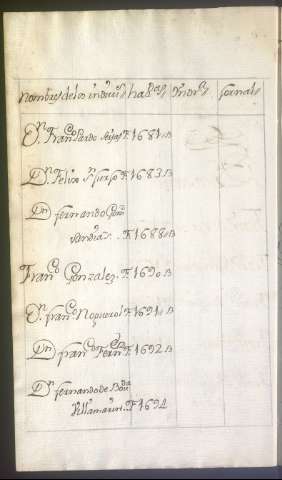 nombres de los indivi.s haz.as Ynor.s Jornal.
D.n Fran.co Pardo F.1681.B
D.n Felix F.1683.B
D.n fernando
F.1688.B
Fran.co Gonzalez F.1690.B
D.n fran.co F.1691.B
D.n fran.co Fern.z F.1692.B
D.n fernando de
Villamarin F.1692